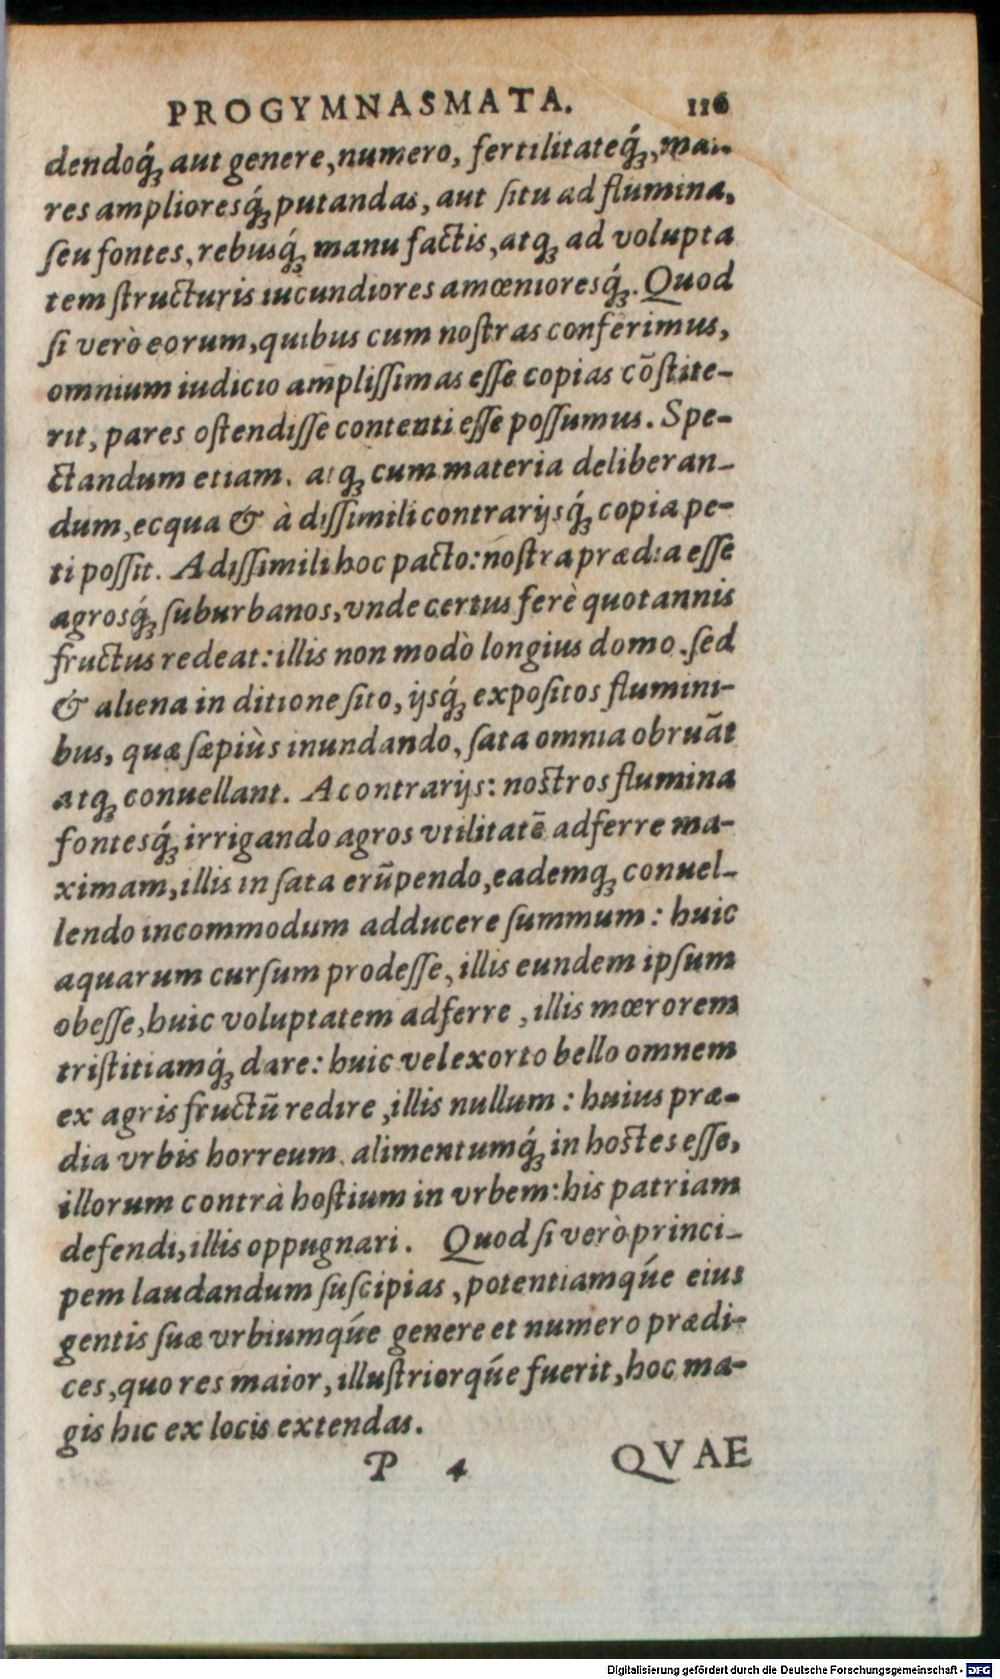 PROGYMNASMATA. 116
dendoq́ꝫ aut genere, numero, fertilitateq́ꝫ, maio-
res amplioresq́ꝫ putandas, aut ſitu ad flumina,
ſeu fontes, rebusq́ꝫ manu factis, atqꝫ ad volupta
tem ſtructuris iucundiores amœnioresq́ꝫ. Quod
ſi verò eorum, quibus cum noſtras conferimus,
omnium iudicio ampliſſimas eſſe copias cõſtite-
rit, pares oſtendiſſe contenti eſſe poſſumus. Spe-
ctandum etiam, atqꝫ cum materia deliberan-
dum, ecqua & à diſſimili contrarijsq́ꝫ copia pe-
ti poſſit. A diſſimili hoc pacto: noſtra prædia eſſe
agrosq́ꝫ ſuburbanos, vnde certus ferè quotannis
fructus redeat: illis non modò longius domo, ſed
& aliena in ditione ſito, ijsq́ꝫ expoſitos flumini-
bus, quæ ſæpiùs inundando, ſata omnia obruãt
atqꝫ conuellant. A contrarijs: noſtros flumina
fontesq́ꝫ irrigando agros vtilitatẽ adferre ma-
ximam, illis in ſata erũpendo, eademqꝫ conuel-
lendo incommodum adducere ſummum: huic
aquarum curſum prodeſſe, illis eundem ipſum
obeſſe, huic voluptatem adferre, illis mœrorem
triſtitiamq́ꝫ dare: huic vel exorto bello omnem
ex agris fructũ redire, illis nullum: huius præ-
dia vrbis horreum, alimentumq́ꝫ in hoſtes eſſe,
illorum contrà hoſtium in vrbem: his patriam
defendi, illis oppugnari. Quod ſi verò princi-
pem laudandum ſuſcipias, potentiamqúe eius
gentis ſuæ vrbiumqúe genere et numero prædi-
ces, quo res maior, illuſtriorqúe fuerit, hoc ma-
gis hic ex locis extendas.
P 4 QVAE
Digitalisierung gefördert durch die Deutsche Forschungsgemeinschaft - DFG